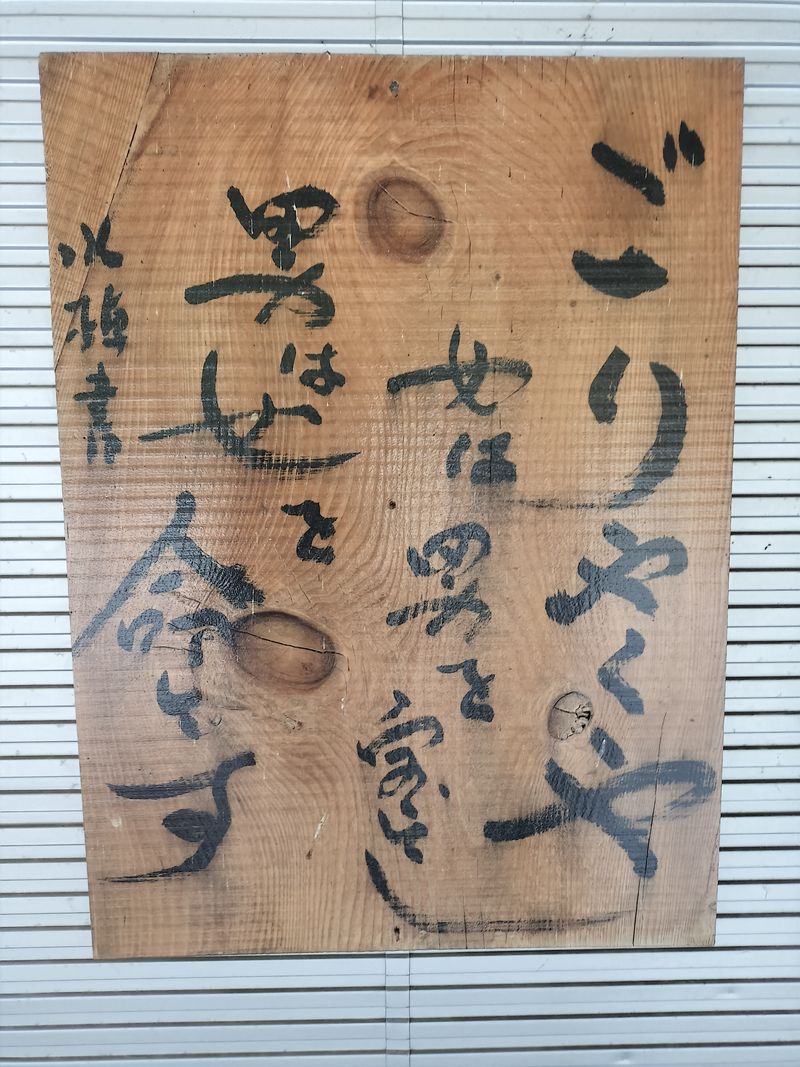 ごりやくや
女は男を とし
男は女を
命とす
書